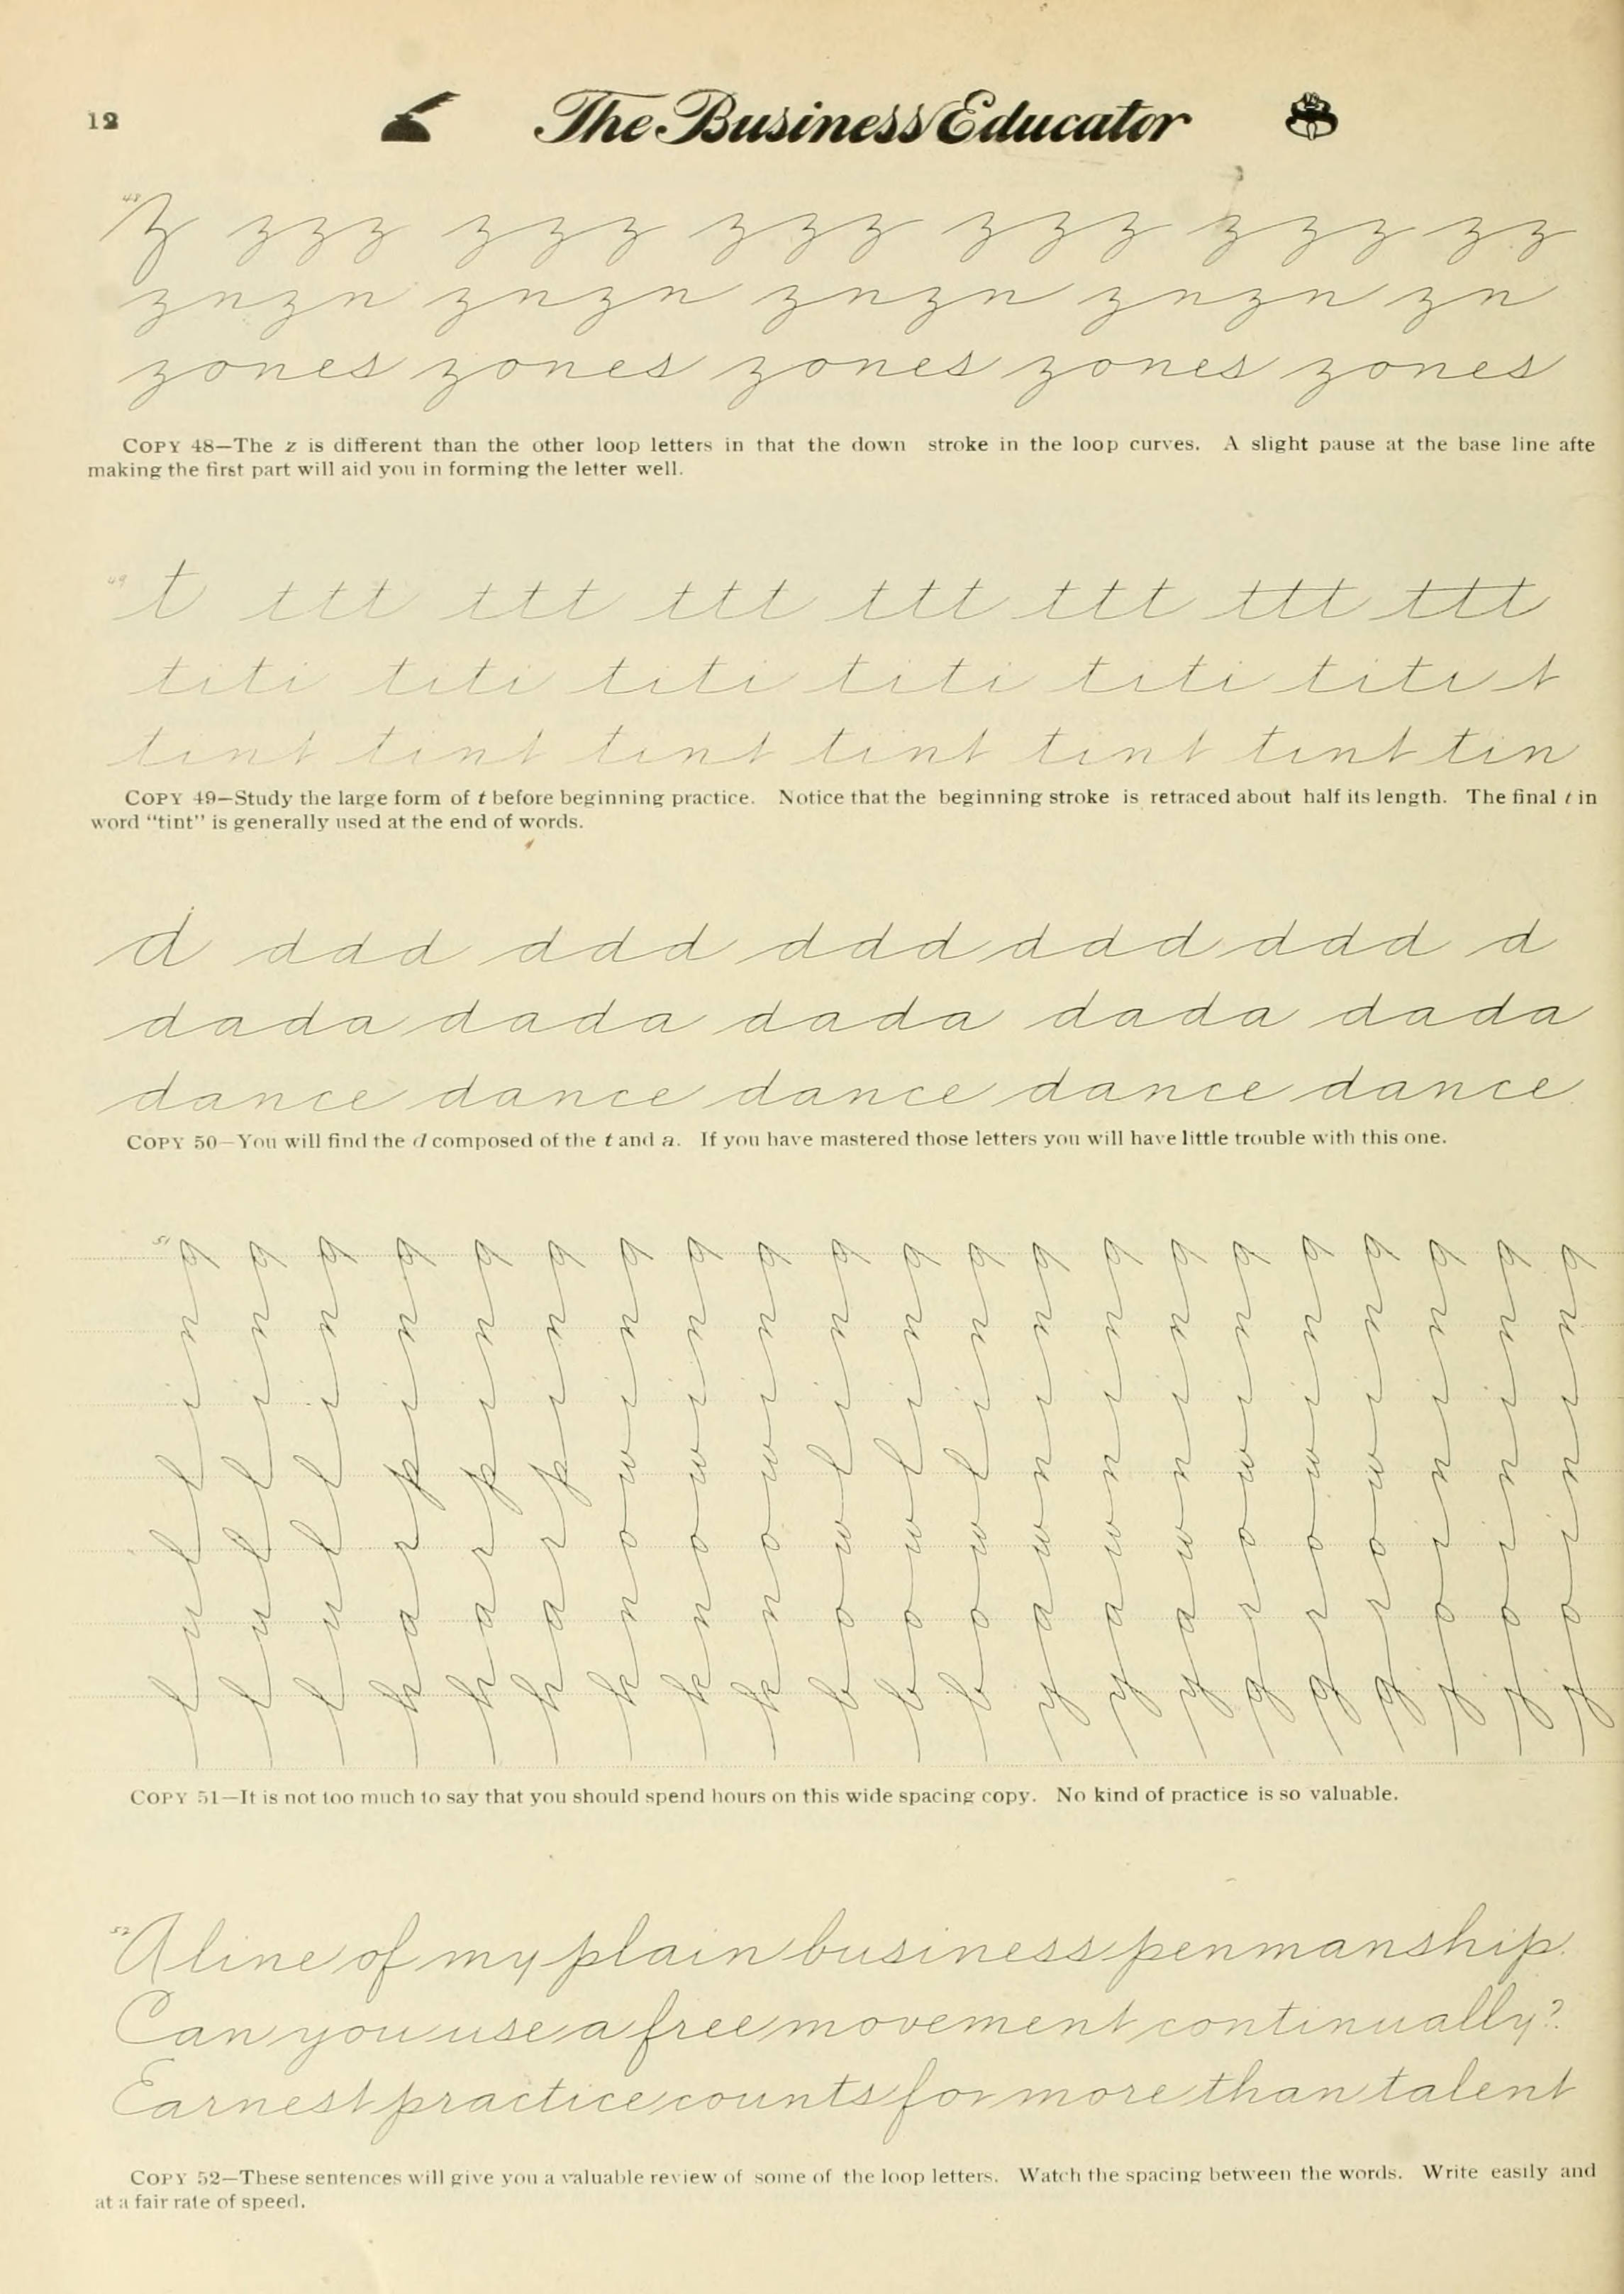 12
The Business Educator
48 z zzz zzz zzz zzz zzz zz
znzn znzn znzn znzn zn
zones zones zones zones zones
COPY 48—The z is different than the other loop letters in that the down stroke in the loop curves. A slight pause at the base line afte
making the first part will aid you in forming the letter well.
49 t ttt ttt ttt ttt ttt ttt ttt
titi titi titi titi titi titi t
tint tint tint tint tint tint tin
COPY 49—Study the large form of t before beginning practice. Notice that the beginning stroke is retraced about half its length. The final t in
word "tint" is generally used at the end of words.
d ddd ddd ddd ddd ddd d
dada dada dada dada dada
dance dance dance dance dance
COPY 50—You will find the d composed of the t and a. If you have mastered those letters you will have little trouble with this one.
51
lulling
lulling
lulling
harping
harping
harping
knowing
knowing
knowing
bowling
bowling
bowling
yawning
yawning
yawning
growing
growing
growing
joining
joining
joining
COPY 51—It is not too much to say that you should spend hours on this wide spacing copy. No kind of practice is so valuable.
52 A line of my plain business penmanship.
Can you use a free movement continually?
Earnest practice counts for more than talent
COPY 52—These sentences will give you a valuable review of some of the loop letters. Watch the spacing between the words. Write easily and
at a fair rate of speed.